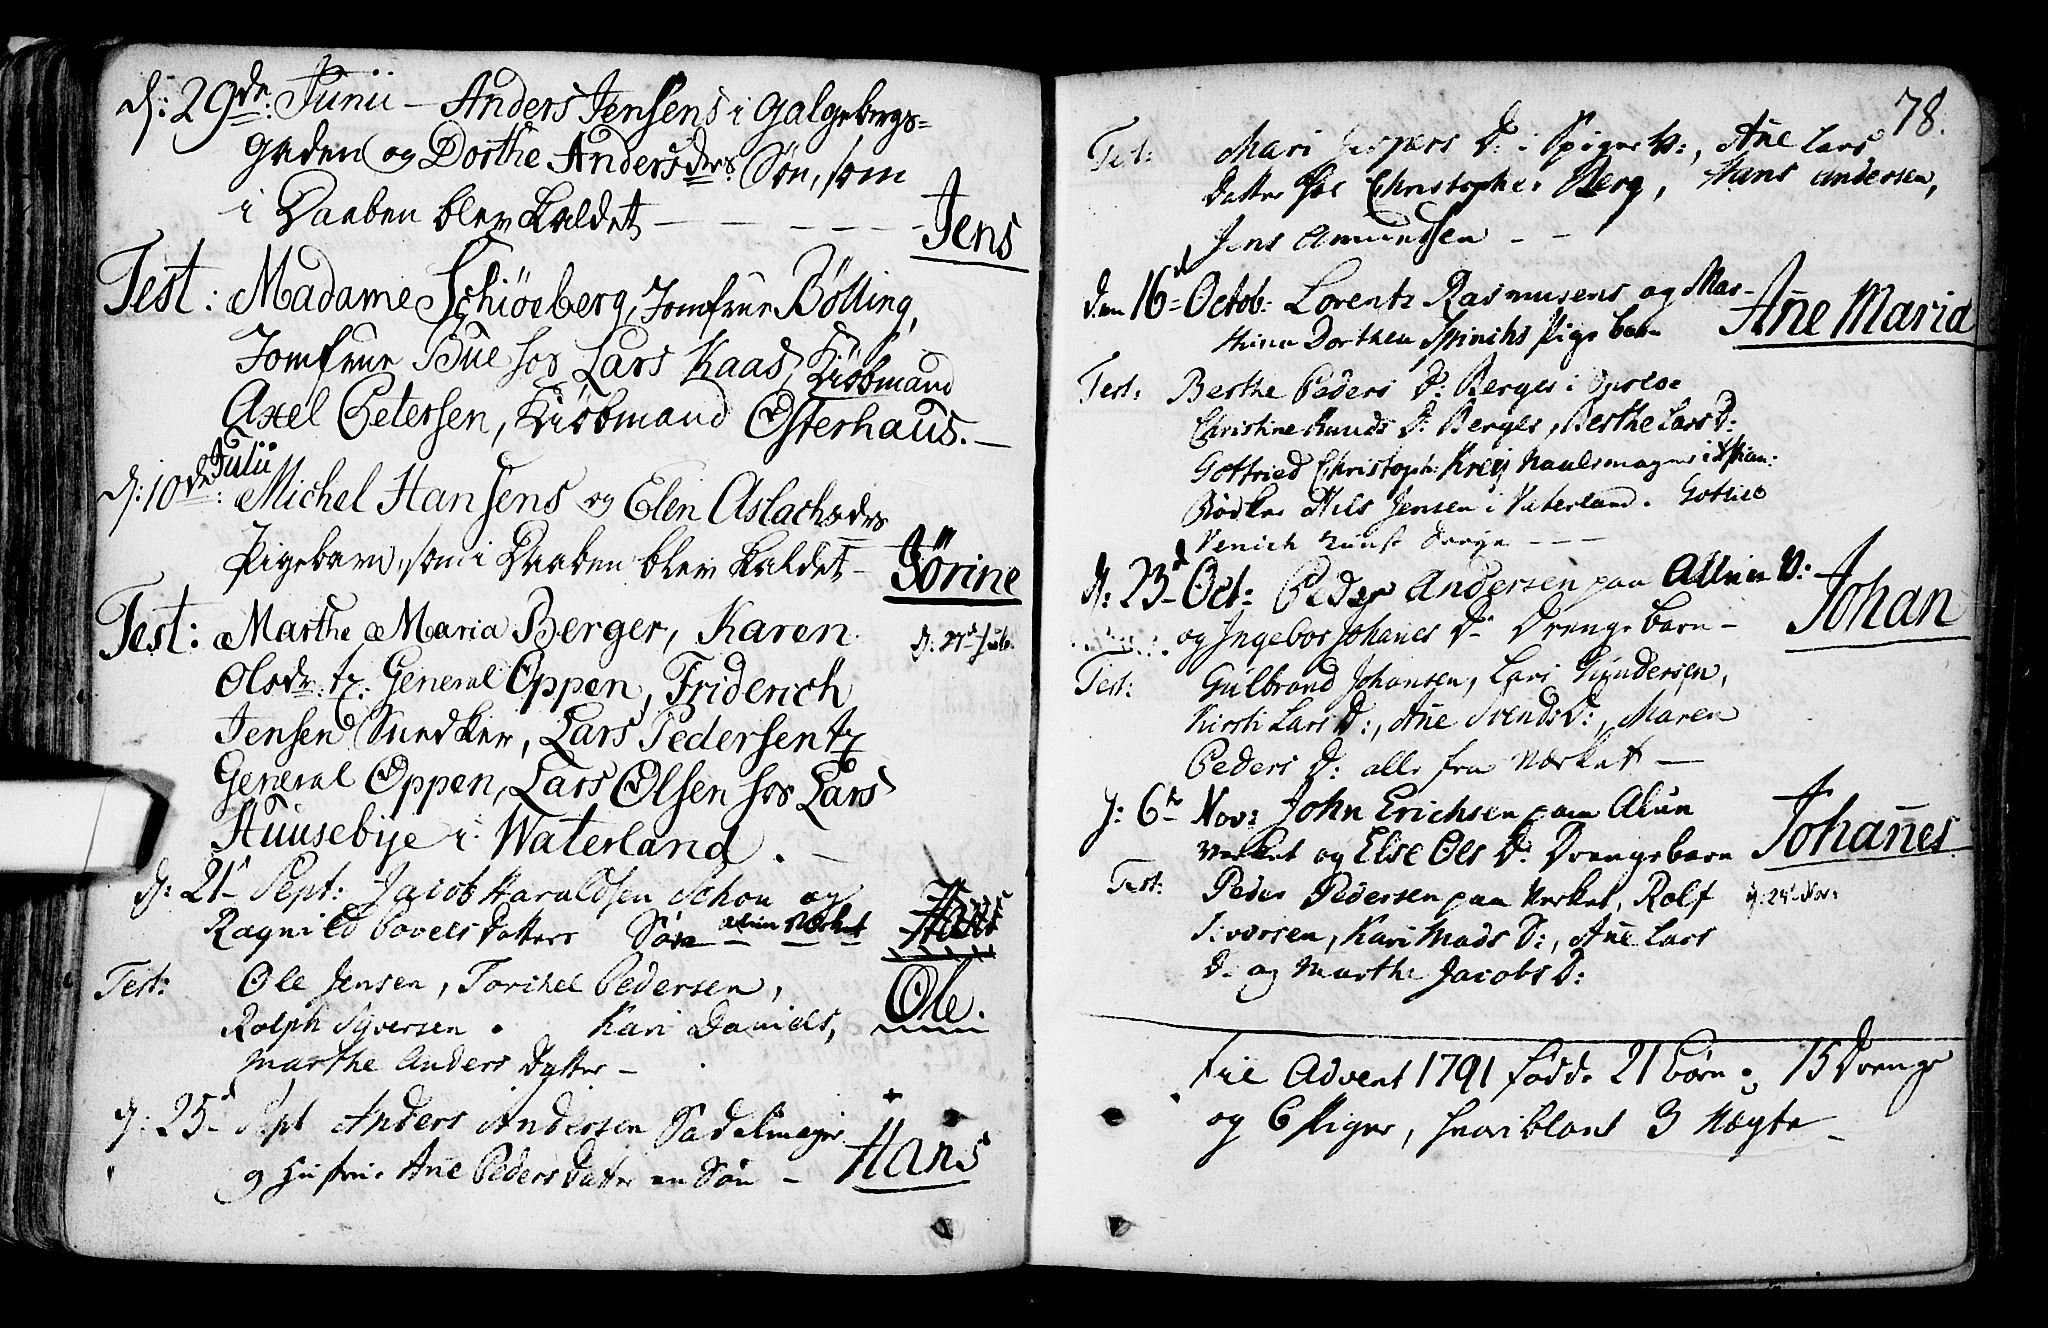 d: 29de Junii - Anders Jensens i Galgebergs=
gaden og Dorthe Andersdrs Søn, som
i Daaben blev kaldet - - - - - Jens
Test: Madame Schiöeberg, Jomfrue Bölling,
Jomfrue Bue hos Lars Kaas, Kiöbmand
Axel Petersen, Kiöbmand Osterhaus. -
Julii
d: 10de: Michel Hansens og Elen Aslachsdrs
Pigebarn, som i Daaben blev kaldet - Jörine
Test: Marthe Maria Berger, Karen
Olsdr. tz: General Oppen, Friderich
Jensen Snedker, Lars Pedersen tz
General Oppen, Lars Olsen hos Lars
Huusebye i Waterland. -
d: 21 Sept: Jacob Haraldsen Schou og
Ragnild Povels Datters Søn alun Værket
Test: Ole Jensen, Torchel Pedersen, Ole.
Rolph Syversen. Kari Daniels,
Marthe Anders Datter -
d: 25 Sept Anders Andersen Sadelmager
og Hustrue Añe Peders Datter en Søn - Hans
78.
Test: Mari Jespers D: i Pigne, Añe Lars
Datter hos Christopher Berg, Hans Andersen,
Jens Amundsen - -
den 16d Octob: Lorentz Rasmusens og Mar- Añe Maria
Dorthea Pige barn
Test: Berthe Peders D: Berges i Opsloe
Christine Knuds D: Berges, Berthe Lars D:
Gottfried Christoph: Naalemager i Xtian:
Bødker Nils Jensen i Vaterland. Gotlieb
d: 23d Oct: Peder Andersen paa Allun V: Johan
og Ingebor Johañes D: Drenge barn -
Test: Gulbrand Johansen, Lars Gundersen,
Kirsti Lars D:, Añe Svends D:, Maren
Peders D: alle fra Værket -
d: 6t Nov: John Erichsen paa Alun Johañes.
Værket og Else Ols D: Drengebarn
Test: Peder Pedersen paa Værket, Rolf
Siversen, Kari Mads D:, Añe Lars
D: og Marthe Jacobs D:
Til Advent 1791 fødde 21 børn: 15 Drenge
og 6 Piger, hvoriblant 3 Uægte -